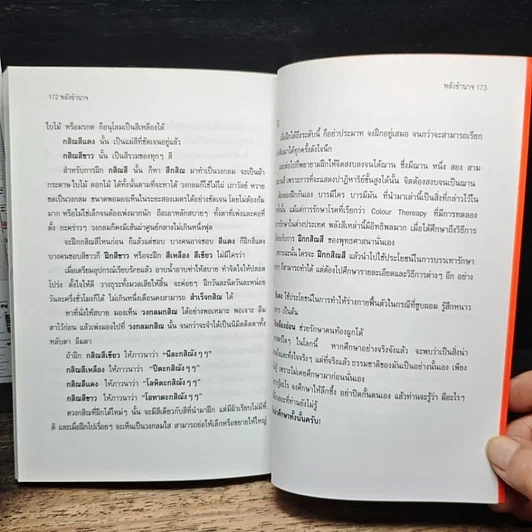 172 พลังอำนาจ
ใบไม้ หรือมรกต ก็อนุโลมเป็นสีเหลืองได้
กสิณสีแดง นั้น เป็นแม่สีที่ชัดเจนอยู่แล้ว
กสิณสีขาว นั้น เป็นสีรวมของทุกๆ สี
สำหรับการฝึก กสิณสี นั้น ก็หา สีกสิณ มาทำเป็นวงกลม จะเป็นผ้า
กระดาษ ใบไม้ ดอกไม้ ได้ทั้งนั้นตามที่จะหาได้ วงกลมก็ใช้ไม้ไผ่ เถาวัลย์ หวาย
ขดเป็นวงกลม ขนาดพอมองเห็นในระยะสองเมตรได้อย่างชัดเจน โดยไม่ต้องก้ม
มาก หรือไม่ใช่เล็กจนต้องเพ่งมากนัก ถือเอาหลักสบายๆ ทั้งตาที่เพ่งและคอที่
ตั้ง กะคร่าวๆ วงกลมก็คงมีเส้นผ่าศูนย์กลางไม่เกินหนึ่งฟุต
จะฝึกกสิณสีไหนก่อน ก็แล้วแต่ชอบ บางคนอาจชอบ สีแดง ก็ฝึกสีแดง
บางคนชอบสีขาวก็ ฝึกสีขาว หรือจะฝึก สีเหลือง สีเขียว ไม่มีใครว่า
เมื่อเตรียมอุปกรณ์เรียบร้อยแล้ว อาบน้ำอาบท่าให้สบาย ทำจิตใจให้ปลอด
โปร่ง ตั้งใจให้ดี วางธุระทั้งมวลเสียให้สิ้น จะค่อยๆ ฝึกวันละนิดวันละหน่อย
วันละครึ่งชั่วโมงก็ได้ ไม่เกินหนึ่งเดือนคงสามารถ สำเร็จกสิณ ได้
หาที่นั่งให้สบาย มองเห็น วงกลมกสิณ ได้อย่างพอเหมาะ พอเจาะ ลืม
ตาไว้ก่อน แล้วเพ่งมองไปที่ วงกลมกสิณ นั้น จนกว่าจะจำได้เป็นนิมิตติดตาทั้ง
หลับตา ลืมตา
ถ้าฝึก กสิณสีเขียว ให้ภาวนาว่า "นีละกสิณังๆๆ"
กสิณสีเหลือง ให้ภาวนาว่า "ปีตะกสิณังๆๆ"
กสิณสีแดง ให้ภาวนาว่า "โลหิตะกสิณังๆๆ"
กสิณสีขาว ให้ภาวนาว่า "โอทาตะกสิณังๆๆ"
ดวงกสิณที่ฝึกได้ใหม่ๆ นั้น จะมีสีเดียวกับสีที่นำมาฝึก แต่มีผิวเรียบไม่มีที่
ติ และเมื่อฝึกไปเรื่อยๆ จะเห็นเป็นวงกลมใส สามารถย่อให้เล็กหรือขยายให้ใหญ่
พลังอำนาจ 173
ได้
เมื่อฝึกได้ถึงระดับนี้ ก็อย่าประมาท จงฝึกอยู่เสมอ จนกว่าจะสามารถเรียก
มาได้ทุกครั้งดังใจนึก
ต่อไปก็พยายามฝึกให้จิตสงบลงจนได้ฌาน ซึ่งมีฌาน หนึ่ง สอง สาม
เพราะการที่จะแสดงปาฏิหาริย์ขั้นสูงได้นั้น จิตต้องสงบจนเป็นฌาน
ของผู้ฝึกกันเอง บารมีใคร บารมีมัน ที่นำมาเล่าเป็นสิ่งที่กล่าวไว้ใน
แม้แต่การรักษาโรคที่เรียกว่า Colour Thereapy ที่มีการทดลอง
ในต่างประเทศ พลังสีเหล่านี้มีอิทธิพลมาก เมื่อได้ศึกษาถึงวิธีการ
กับการ ฝึกกสิณสี ของพุทธศาสนานั้นเอง
ฉะนั้นใครจะฝึกกสิณสี แล้วนำไปใช้ประโยชน์ในการบรรเทารักษา
ก็สามารถทำได้ แต่ต้องไปศึกษารายละเอียดและวิธีการต่างๆ อีก อย่าง
แดง ใช้ประโยชน์ในการทำให้ร่างกายฟื้นตัวในกรณีที่ซูบผอม รู้สึกหนาว
เป็นต้น
ช่วยรักษาคนท้องผูกได้
ในโลกนี้ หากศึกษาอย่างจริงจังแล้ว จะพบว่าเป็นสิ่งน่า
และทึ่งใจจริงๆ แต่ที่จริงแล้ว ธรรมชาติของมันเป็นอย่างนั้นเอง เพียง
เพราะไม่เคยศึกษามาก่อนนั่นเอง
อะไร จงศึกษาให้ลึกซึ้ง อย่าปิดกั้นตนเอง แล้วท่านจะรู้ว่า มีอะไรๆ
ที่ท่านยังไม่รู้
ศึกษาทั้งนั้นครับ!